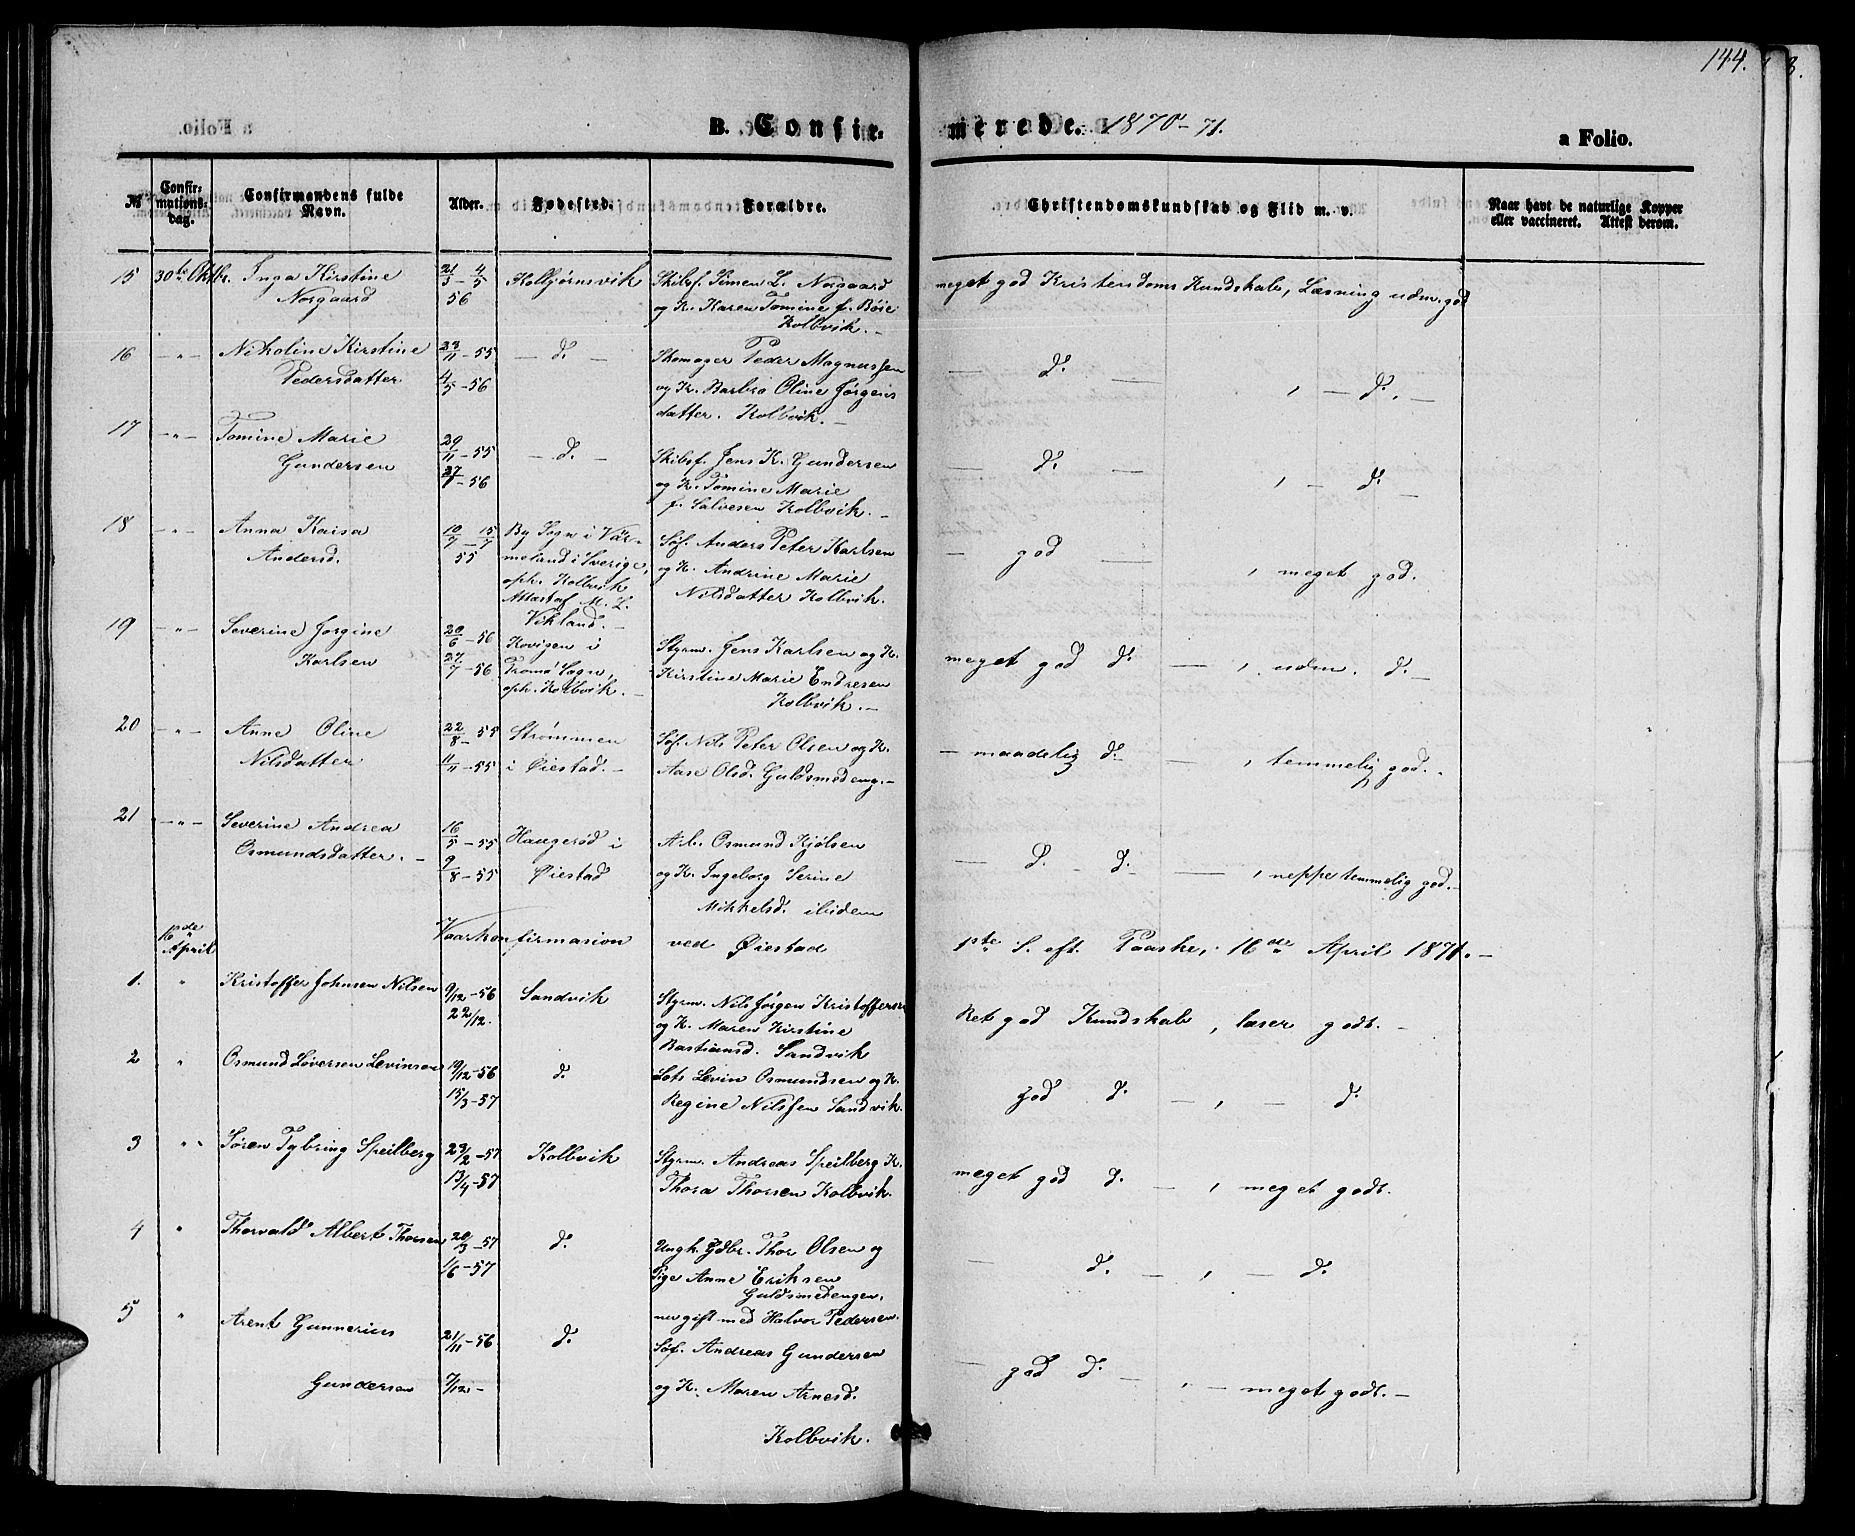 144.
8.
B. Confir-
merede. 1870-71.
a Folio.
№
Confir-
mations-
dag.
Confirmandens fulde
Navn.
Alder.
Fødested.
Forældre.
Christendomskundskab og Flid m. v.
Naar havt de naturlige Kopper
eller vaccineret. Attest derom.
15 30te Oktbr. Inga Kirstine
Norgaard
21/3 - 4/5
56
Kolbjørnsvik
Skibsf. Simen L. Norgaard
og K. Karen Tomine f. Bøie
Kolbvik. -
meget god Kristendoms Kundskab, Læsning udm. god
16 - " - Nikoline Kirstine
Pedersdatter.
23/11 - 55
4/5 - 56
- d. -
Skomager Peder Magnussen
og K. Barbro Oline Jørgens
datter. Kolbvik. -
- d. - , - d. -
17 - " - Tomine Marie
Gundersen
29/11 - 55
27/1 - 56
- d. -
Skibsf. Jens K. Gundersen
og K. Tomine Marie
f. Salvesen Kolbvik. -
- d. - , - d. -
18 - " - Anna Kaisa
Andersd.
10/7 - 15/7
55
By Sogn i Vär-
meland i Sverige,
oph. Kolbvik
Attest af M. L.
Vikland. -
Søf. Anders Peter Karlsen
og K. Andrine Marie
Nilsdatter Kolbvik.
- god - , meget god.
19 - " - Severine Jørgine
Karlsen
20/6 - 56
27/7 - 56
Kovigen i
Tromø Sogn,
oph. Kolbvik. -
Styrm. Jens Karlsen og K.
Kirstine Marie Endresen
Kolbvik. -
meget god d. - , udm. d. -
20 - " - Anne Oline
Nilsdatter
22/8 - 55
11/11 - 55
Strømmen
i Øiestad. -
Søf. Nils Peter Olsen og K.
Aase Olsd. Guldsmedeng. -
- maadelig d. - , temmelig god. -
21 - " - Severine Andrea
Osmundsdatter. -
16/5 - 55
9/8 - 55
Haugerød i
Øiestad
Arb. Osmund Kjølsen
og K. Ingeborg Serine
Mikkelsd. ibidem
- d. d. - , neppe temmelig god. -
16de
April
Vaarkonfirmasion ved Øiestad
1ste S. eft. Paaske, 16de April 1871. -
1. " Kristoffer Johnsen Nilsen
9/12 - 56
22/12.
Sandvik
Styrm. Nils Jørgen Kristoffersen
og K. Maren Kirstine
Bastiansd. Sandvik
Ret god Kundskab, læser godt. -
2 " Osmund Løversen Levinsen
19/12 - 56
15/3 - 57
d.
Lots Levin Osmundsen og K.
Regine Nilssen Sandvik.
god d. - , - d.
3 " " Søren Tybring Speilberg
23/2 - 57
13/4 - 57
Kolbvik
Styrm. Andreas Speilberg K.
Thora Thorsen Kolbvik.
meget god d. - , meget godt.
4 " Thorvald Albert Thorsen
20/3 - 57
1/6 - 57
d.
Ungk. Gdbr. Thor Olsen og
Pige Anne Eriksen
Guldsmedengen,
nu gift med Halvor Pedersen.
- d. - , - d.
5 " Arent Gunnerius
Gundersen
21/11 - 56
7/12 -
d.
Søf. Andreas Gundersen
og K. Maren Arnesd.
Kolbvik.
- god d. - , - meget godt. -